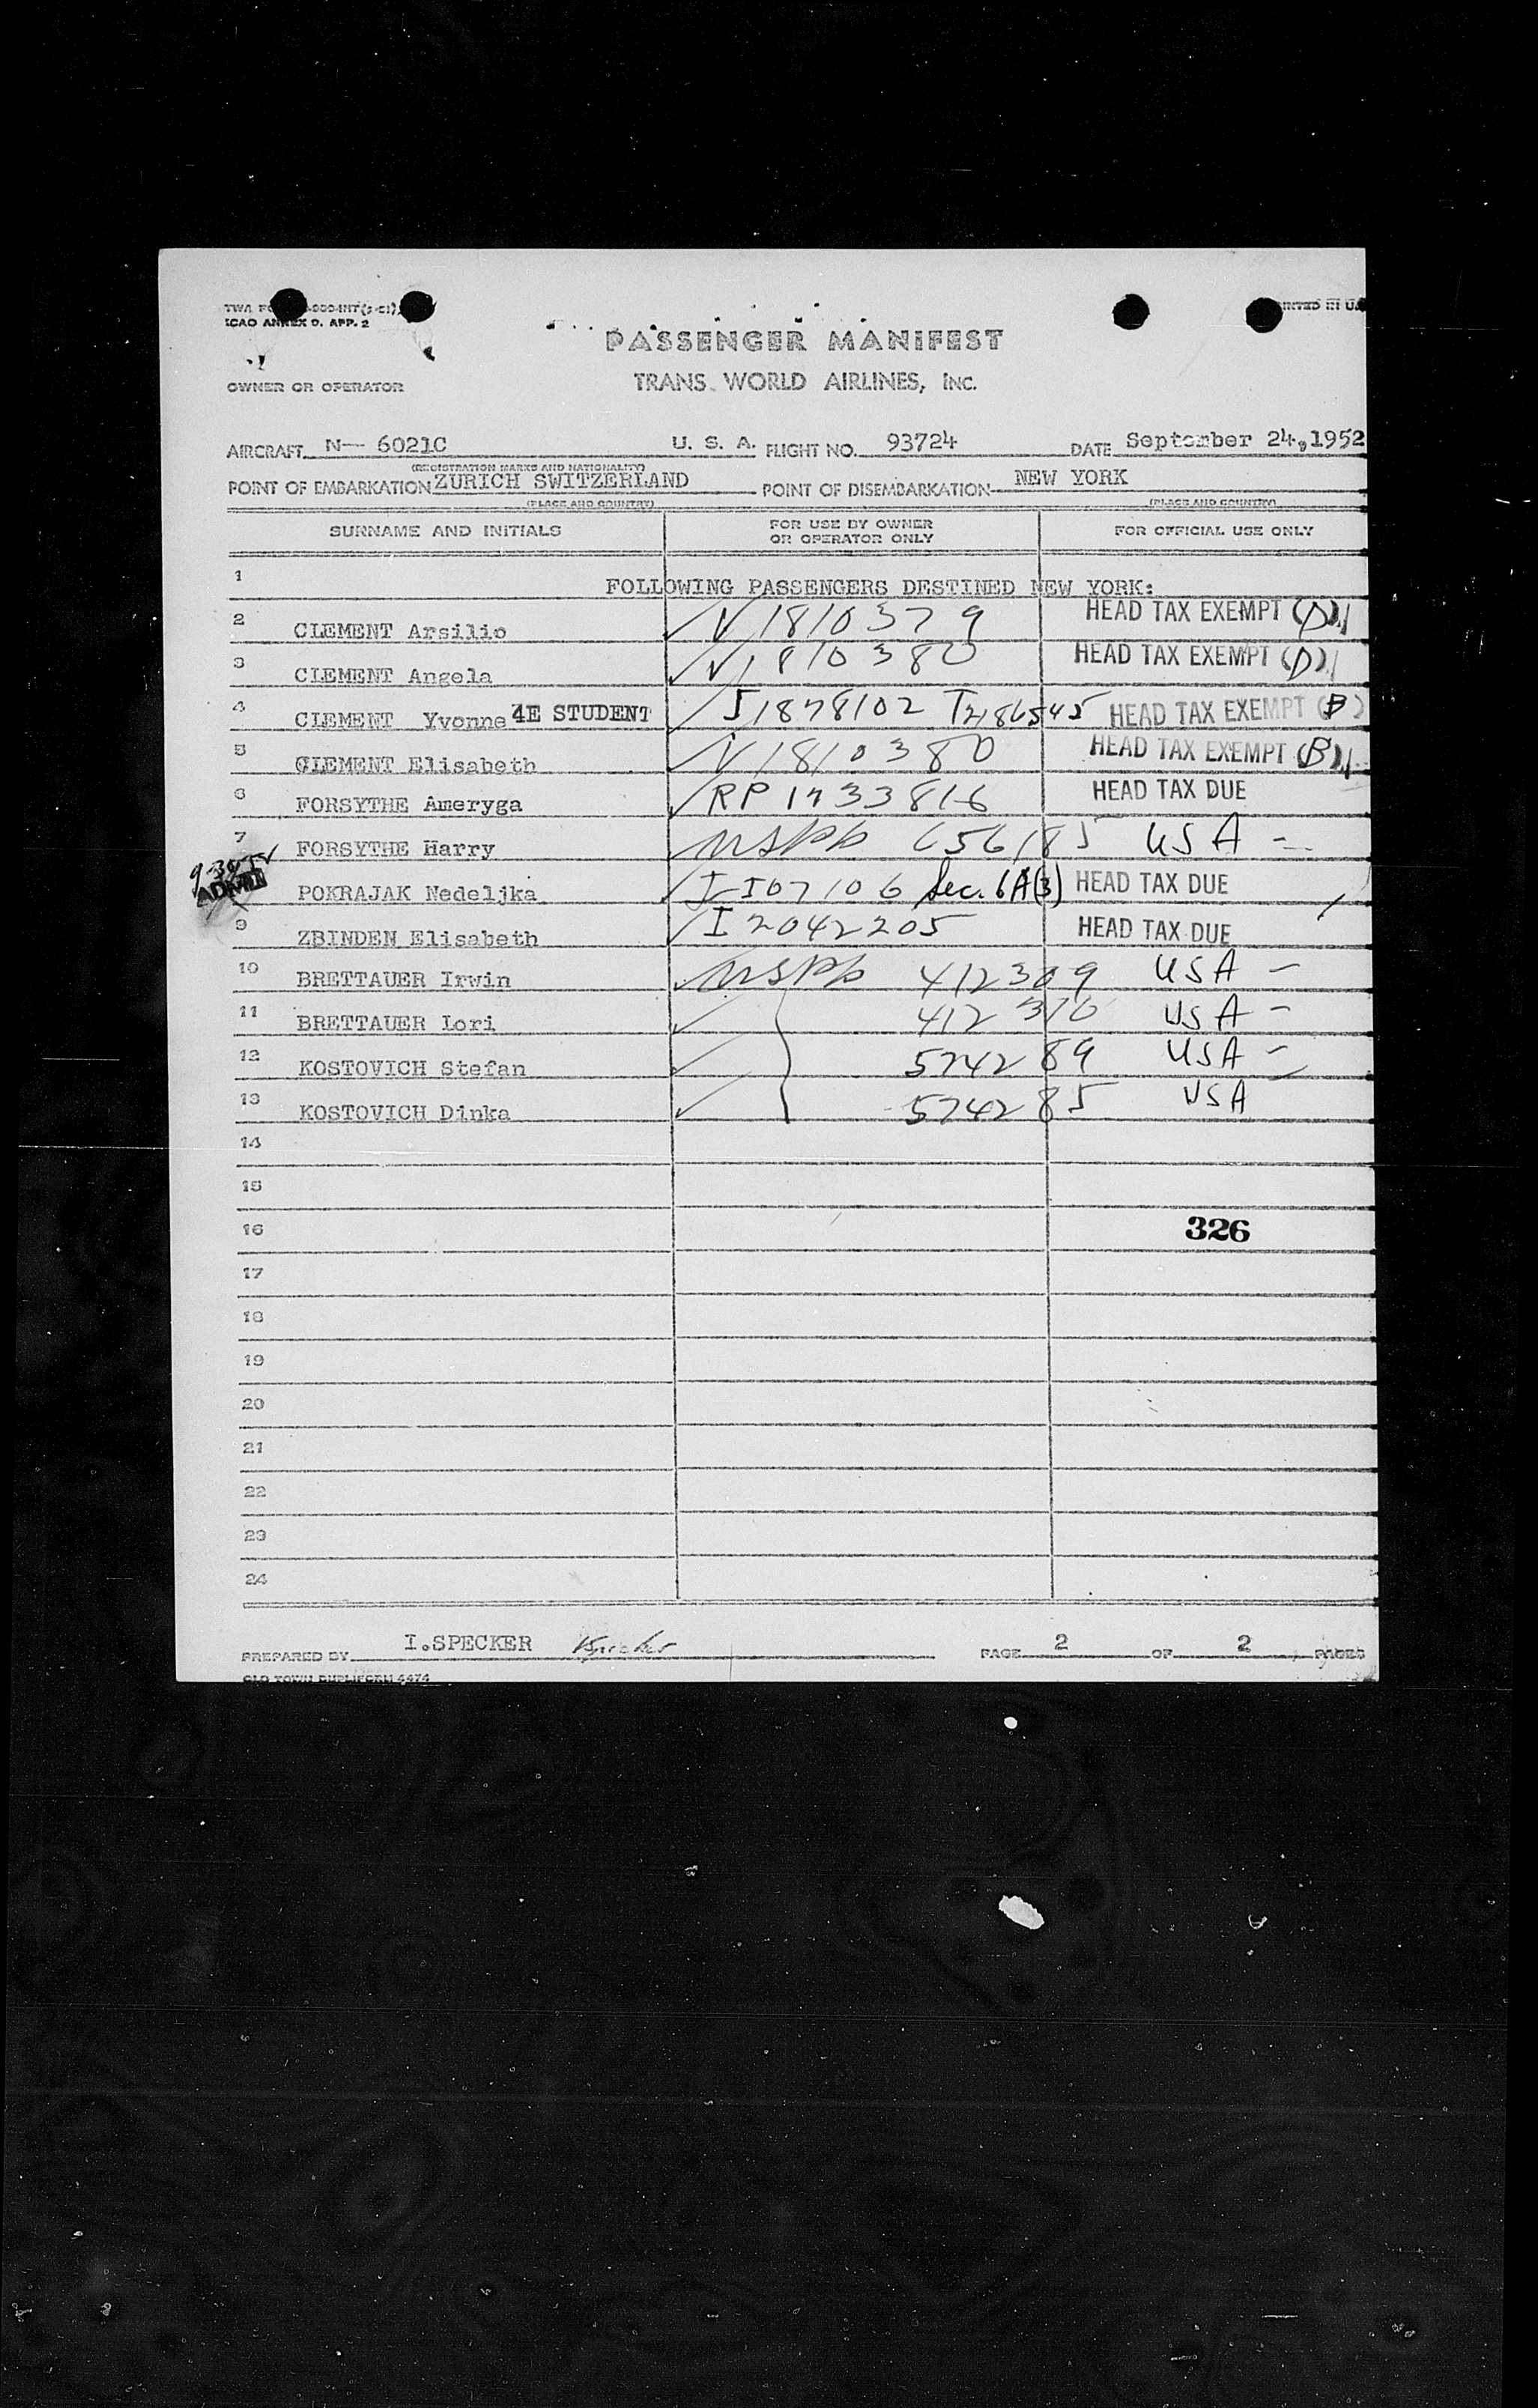 ICAO ANNEX 9. APP. 2
PRINTED IN U.S.
PASSENGER MANIFEST
OWNER OR OPERATOR TRANS WORLD AIRLINES, INC.
AIRCRAFT N— 6021C U. S. A. FLIGHT NO. 93724 DATE September 24, 1952
(REGISTRATION MARKS AND NATIONALITY)
POINT OF EMBARKATION ZURICH SWITZERLAND POINT OF DISEMBARKATION NEW YORK
(PLACE AND COUNTRY) (PLACE AND COUNTRY)
SURNAME AND INITIALS FOR USE BY OWNER OR OPERATOR ONLY FOR OFFICIAL USE ONLY
1 FOLLOWING PASSENGERS DESTINED NEW YORK:
2 CLEMENT Arsilio V 1810379 HEAD TAX EXEMPT (D)
3 CLEMENT Angela V 1810380 HEAD TAX EXEMPT (D)
4 CLEMENT Yvonne 4E STUDENT HEAD TAX EXEMPT (B)
5 CLEMENT Elisabeth V 1810380 HEAD TAX EXEMPT (B)
6 FORSYTHE Ameryga RP 1733816 HEAD TAX DUE
7 FORSYTHE Harry USPP 656185 USA -
9-30-52
ADMIT
POKRAJAK Nedeljka I I07106 Sec. 6A(3) HEAD TAX DUE
9 ZBINDEN Elisabeth I 2042205 HEAD TAX DUE
10 BRETTAUER Irwin USPP 412309 USA -
11 BRETTAUER Lori 412310 USA -
12 KOSTOVICH Stefan 574289 USA -
13 KOSTOVICH Dinka 574285 USA
14
15
16 326
17
18
19
20
21
22
23
24
PREPARED BY I.SPECKER Specker PAGE 2 OF 2 PAGES
OLD TOWN DUPLIFORM 4474